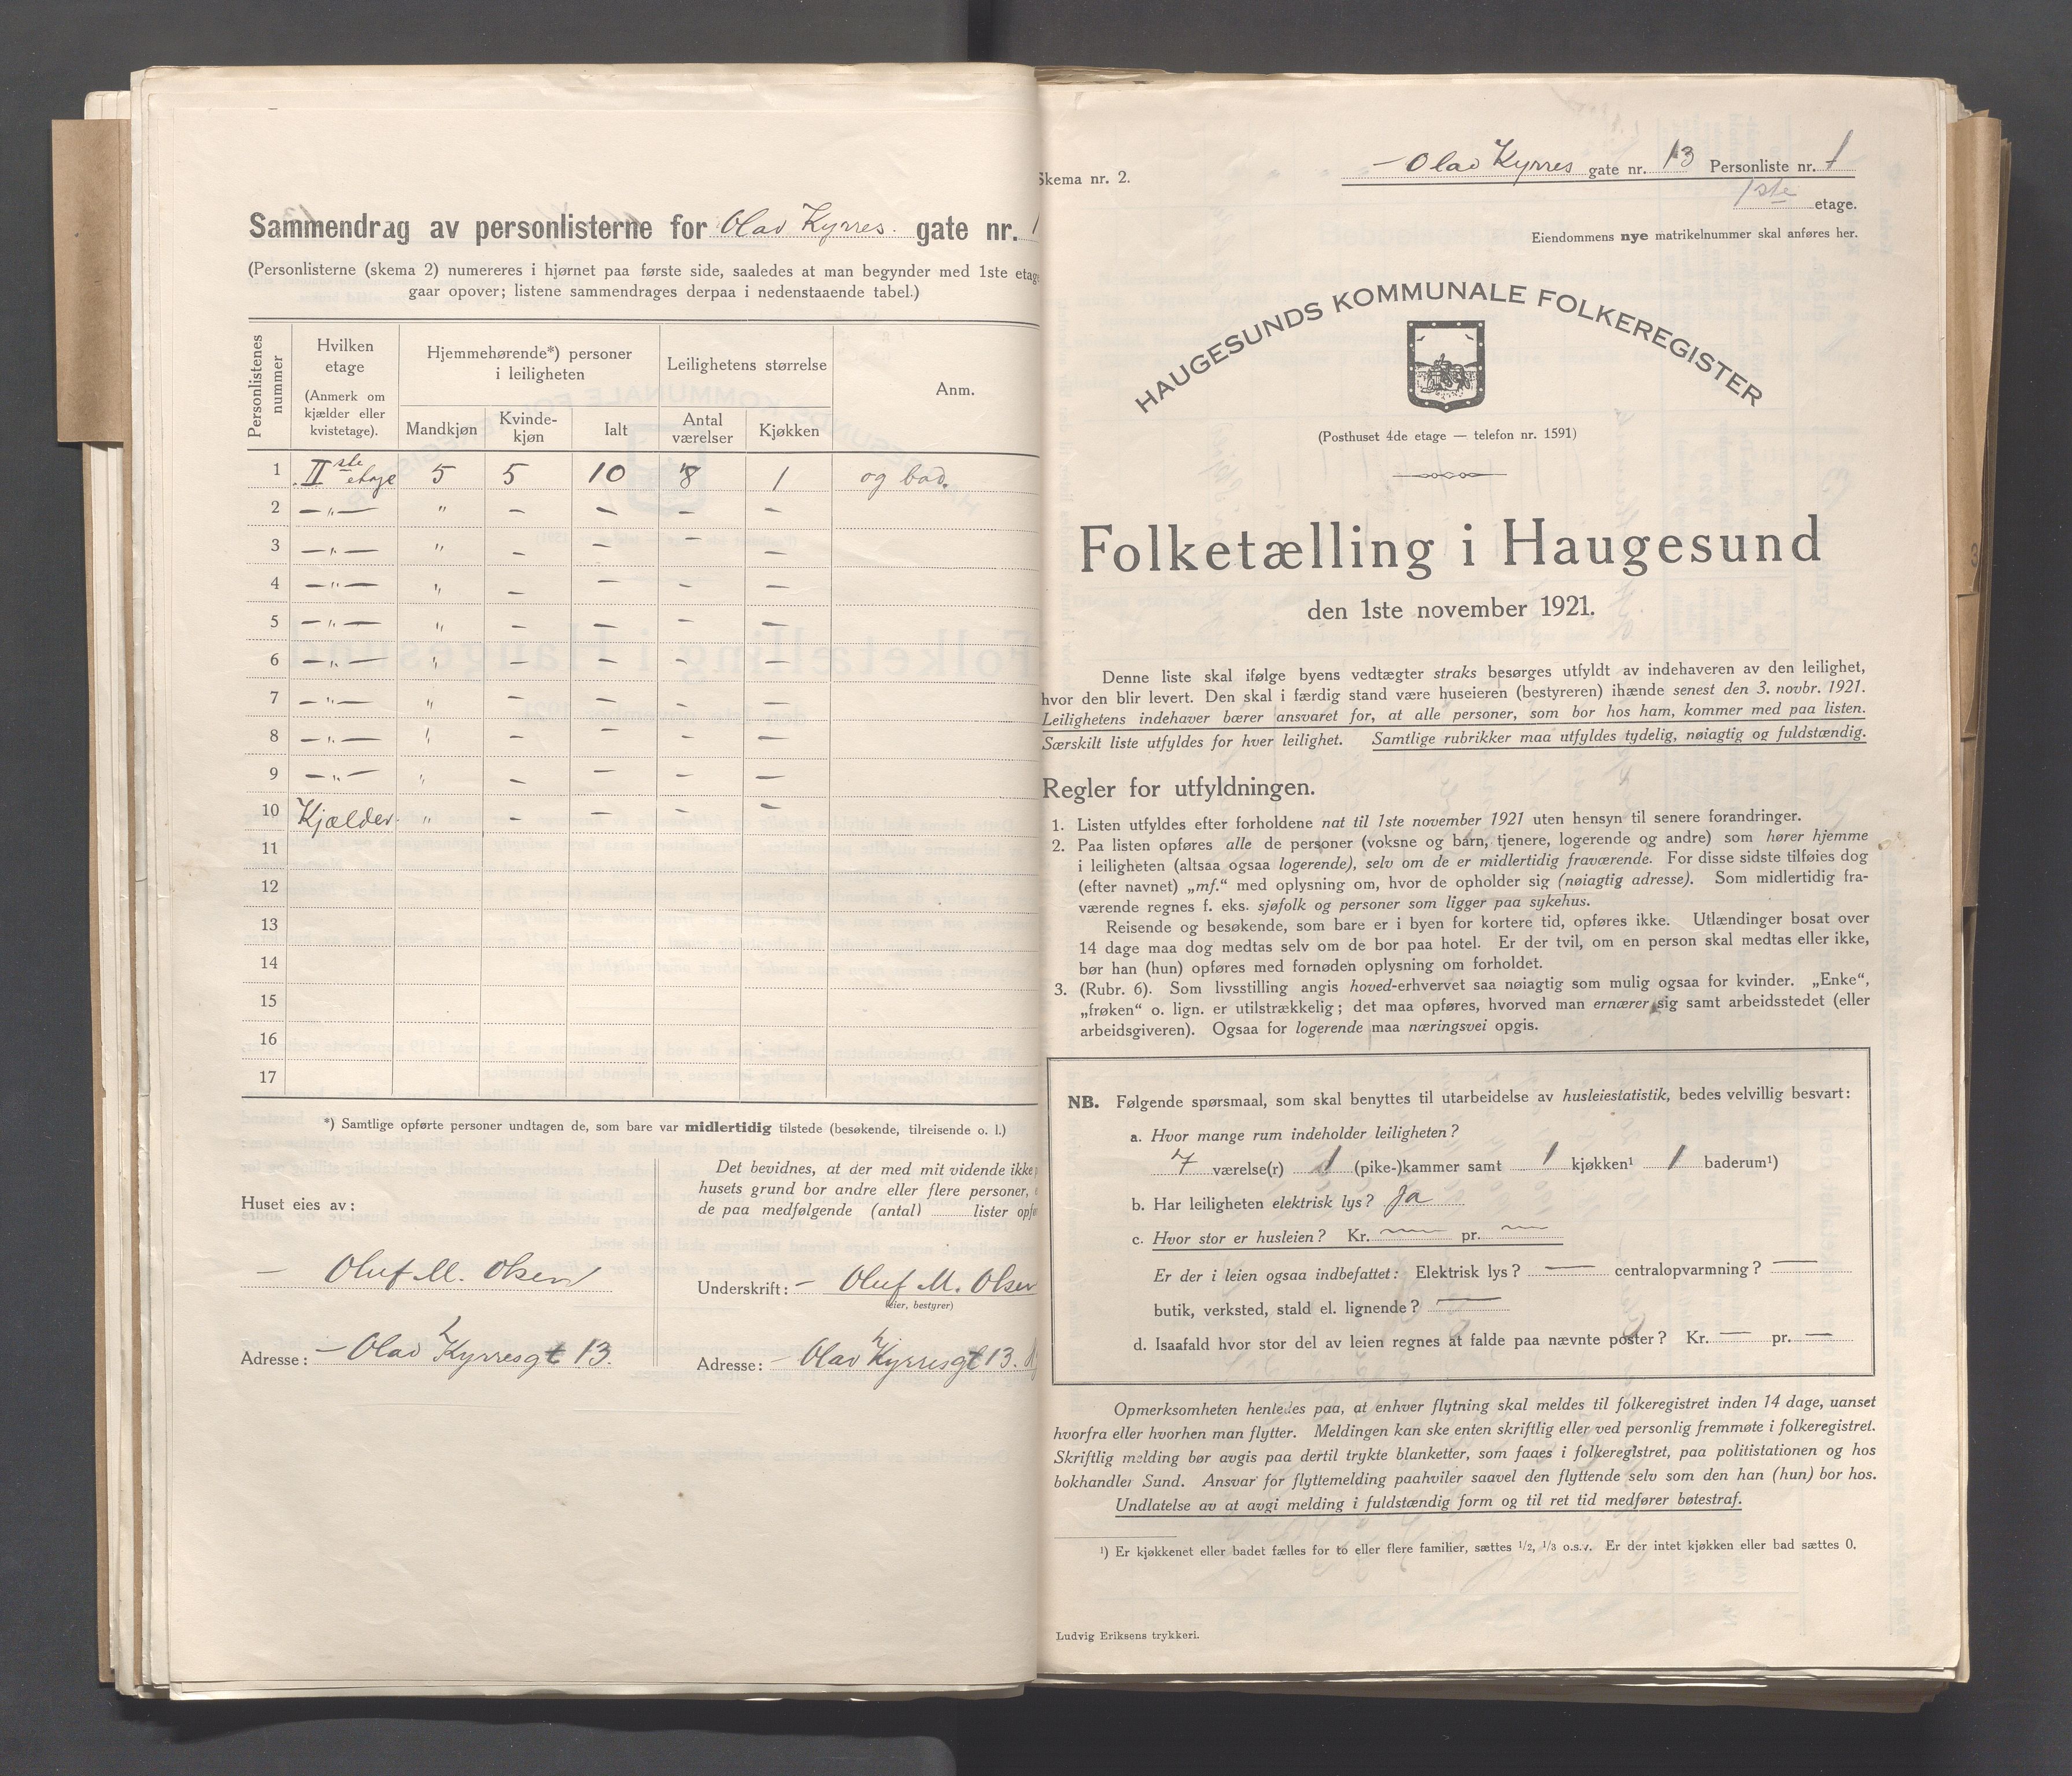 Sammendrag av personlisterne for Olav Kyrres. gate nr. 1
(Personlisterne (skema 2) numereres i hjørnet paa første side, saaledes at man begynder med 1ste etage
gaar opover; listene sammendrages derpaa i nedenstaaende tabel.)
Personlistenes nummer
Hvilken etage
(Anmerk om kjælder eller kvistetage).
Hjemmehørende*) personer i leiligheten
Leilighetens størrelse
Anm.
Mandkjøn Kvinde-kjøn Ialt Antal værelser Kjøkken
1 II ste etage 5 5 10 8 1 og bad.
2 — „ — „ — — — —
3 — „ — „ — — — —
4 — „ — „ — — — —
5 — „ — „ — — — —
6 — „ — „ — — — —
7 — „ — „ — — — —
8 — „ — „ — — — —
9 — „ — „ — — — —
10 Kjælder. „ — — — —
11
12
13
14
15
16
17
*) Samtlige opførte personer undtagen de, som bare var midlertidig tilstede (besøkende, tilreisende o. l.)
Huset eies av:
— Oluf M. Olsen
Adresse: — Olav Kyrresgt 13.
Det bevidnes, at der med mit vidende ikke
husets grund bor andre eller flere personer,
de paa medfølgende (antal) lister opfø
Underskrift: — Oluf M. Olsen
(eier, bestyrer)
Adresse: — Olav Kyrresgt 13.
Skema nr. 2.
— Olav Kyrres gate nr. 13 Personliste nr. 1
1ste etage.
Eiendommens nye matrikelnummer skal anføres her.
HAUGESUNDS KOMMUNALE FOLKEREGISTER
(Posthuset 4de etage — telefon nr. 1591)
Folketælling i Haugesund
den 1ste november 1921.
Denne liste skal ifølge byens vedtægter straks besørges utfyldt av indehaveren av den leilighet,
hvor den blir levert. Den skal i færdig stand være huseieren (bestyreren) ihænde senest den 3. novbr. 1921.
Leilighetens indehaver bærer ansvaret for, at alle personer, som bor hos ham, kommer med paa listen.
Særskilt liste utfyldes for hver leilighet. Samtlige rubrikker maa utfyldes tydelig, nøiagtig og fuldstændig.
Regler for utfyldningen.
1. Listen utfyldes efter forholdene nat til 1ste november 1921 uten hensyn til senere forandringer.
2. Paa listen opføres alle de personer (voksne og barn, tjenere, logerende og andre) som hører hjemme
i leiligheten (altsaa ogsaa logerende), selv om de er midlertidig fraværende. For disse sidste tilføies dog
(efter navnet) „mf.“ med oplysning om, hvor de opholder sig (nøiagtig adresse). Som midlertidig fra-
værende regnes f. eks. sjøfolk og personer som ligger paa sykehus.
Reisende og besøkende, som bare er i byen for kortere tid, opføres ikke. Utlændinger bosat over
14 dage maa dog medtas selv om de bor paa hotel. Er der tvil, om en person skal medtas eller ikke,
bør han (hun) opføres med fornøden oplysning om forholdet.
3. (Rubr. 6). Som livsstilling angis hoved-erhvervet saa nøiagtig som mulig ogsaa for kvinder. „Enke“,
„frøken“ o. lign. er utilstrækkelig; det maa opføres, hvorved man ernærer sig samt arbeidsstedet (eller
arbeidsgiveren). Ogsaa for logerende maa næringsvei opgis.
NB. Følgende spørsmaal, som skal benyttes til utarbeidelse av husleiestatistik, bedes velvillig besvart:
a. Hvor mange rum indeholder leiligheten?
7 værelse(r) 1 (pike-)kammer samt 1 kjøkken¹ 1 baderum¹)
b. Har leiligheten elektrisk lys? Ja
c. Hvor stor er husleien? Kr. — pr. —
Er der i leien ogsaa indbefattet: Elektrisk lys? — centralopvarmning? —
butik, verksted, stald el. lignende? —
d. Isaafald hvor stor del av leien regnes at falde paa nævnte poster? Kr. — pr. —
Opmerksomheten henledes paa, at enhver flytning skal meldes til folkeregistret inden 14 dage, uanset
hvorfra eller hvorhen man flytter. Meldingen kan ske enten skriftlig eller ved personlig fremmøte i folkeregistret.
Skriftlig melding bør avgis paa dertil trykte blanketter, som faaes i folkeregistret, paa politistationen og hos
bokhandler Sund. Ansvar for flyttemelding paahviler saavel den flyttende selv som den han (hun) bor hos.
Undlatelse av at avgi melding i fuldstændig form og til ret tid medfører bøtestraf.
¹) Er kjøkkenet eller badet fælles for to eller flere familier, sættes 1/2, 1/3 o.s.v. Er der intet kjøkken eller bad sættes 0.
Ludvig Eriksens trykkeri.